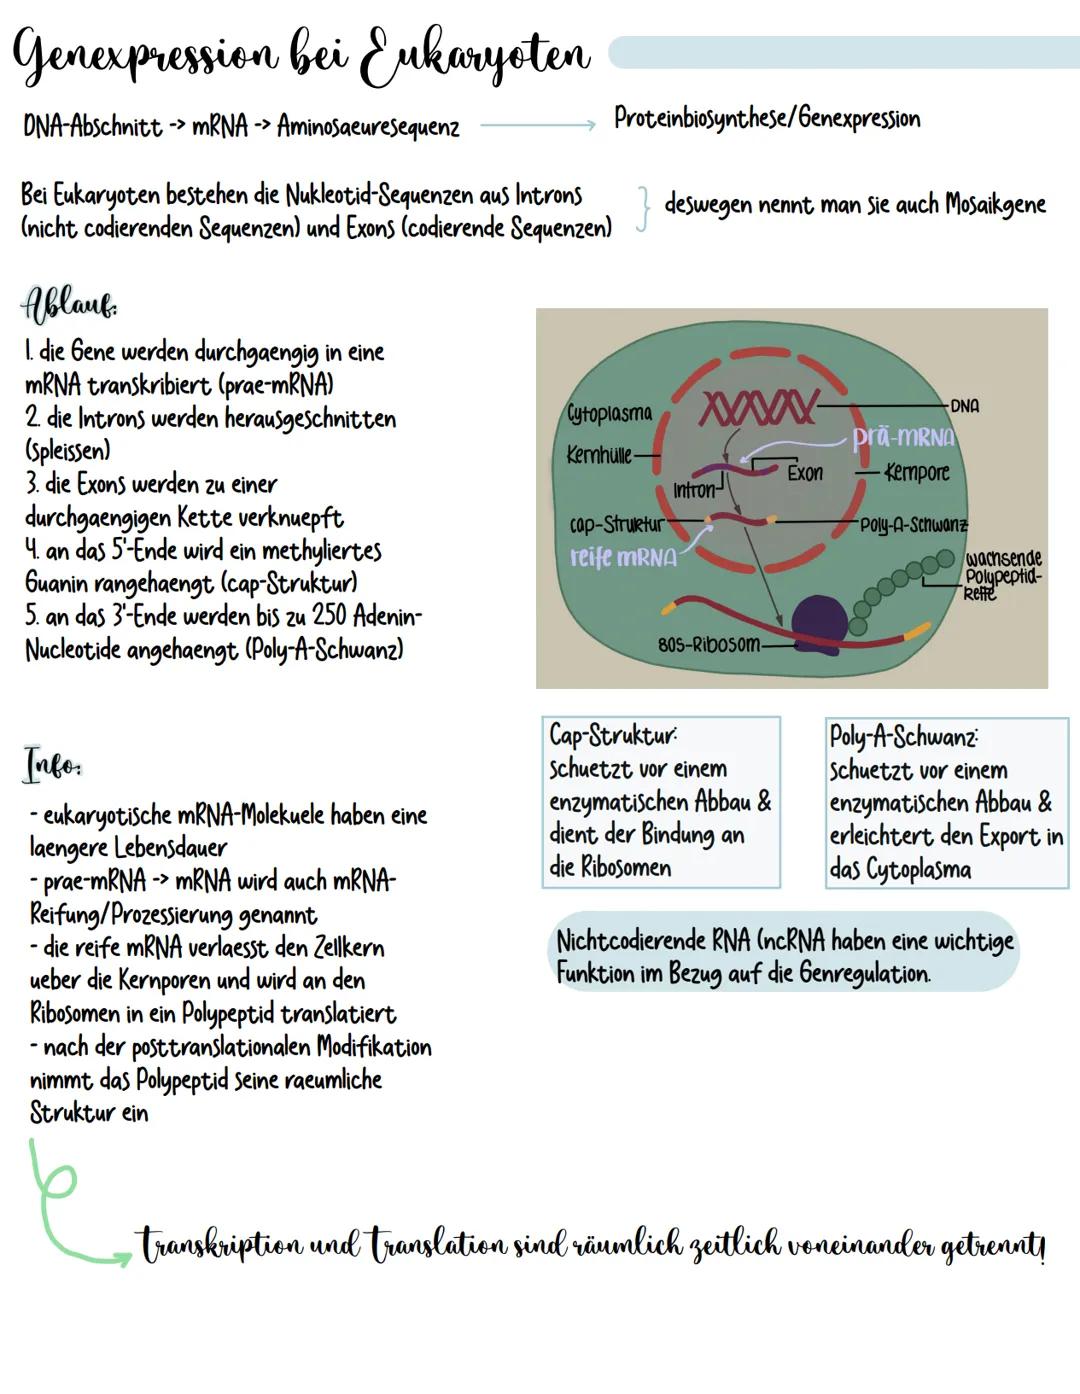 Genexpression bei Eukaryoten
DNA-Abschnitt -> mRNA -> Aminosaeuresequenz
Proteinbiosynthese/Genexpression
Bei Eukaryoten bestehen die Nukleotid-Sequenzen aus Introns
(nicht codierenden Sequenzen) und Exons (codierende Sequenzen)
deswegen nennt man sie auch Mosaikgene
Ablauf:
1. die Gene werden durchgaengig in eine
mRNA transkribiert (prae-mRNA)
2. die Introns werden herausgeschnitten
(spleissen)
3. die Exons werden zu einer
durchgaengigen Kette verknuepft
4. an das 5'-Ende wird ein methyliertes
Guanin rangehaengt (cap-Struktur)
5. an das 3'-Ende werden bis zu 250 Adenin-
Nucleotide angehaengt (Poly-A-Schwanz)
Cytoplasma
DNA
prä-mRNA
Kernhülle
Exon
Kernpore
Intron
cap-Struktur
Poly-A-Schwanz
reife mRNA
wachsende
Polypeptid-
kette
80S-Ribosom
Cap-Struktur:
Schuetzt vor einem
enzymatischen Abbau &
dient der Bindung an
die Ribosomen
Poly-A-Schwanz:
Schuetzt vor einem
enzymatischen Abbau &
erleichtert den Export in
das Cytoplasma
Info:
- eukaryotische mRNA-Molekuele haben eine
laengere Lebensdauer
- prae-mRNA -> mRNA wird auch mRNA-
Reifung/Prozessierung genannt
- die reife mRNA verlaesst den Zellkern
ueber die Kernporen und wird an den
Ribosomen in ein Polypeptid translatiert
- nach der posttranslationalen Modifikation
nimmt das Polypeptid seine raeumliche
Struktur ein
Nichtcodierende RNA (ncRNA haben eine wichtige
Funktion im Bezug auf die Genregulation.
Transkription und Translation sind räumlich zeitlich voneinander getrennt!